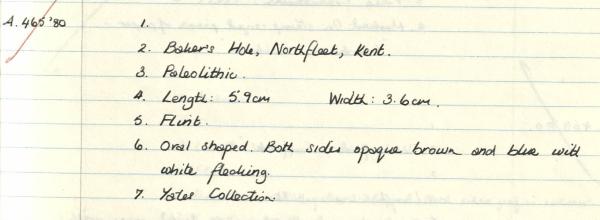 A.465'80
1.
2. Baker's Hole, Northfleet, Kent.
3. Paleolithic.
4. Length: 5.9cm Width: 3.6cm.
5. Flint.
6. Oval shaped. Both sides opaque brown and blue with
white flecking.
7. Yates Collection